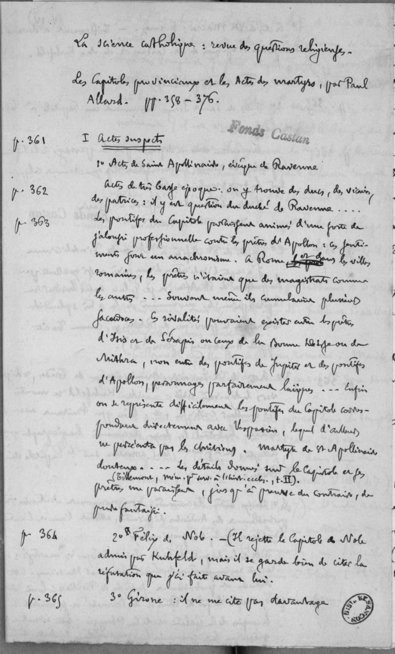 La science catholique : revue des questions religieuses.
Les Capitoles provinciaux et les Actes des martyrs, par Paul
Allard. pp. 358 – 376.
Fonds Castan
p. 361 I Actes suspects
1º Actes de Saint Apollinaire, évêque de Ravenne
p. 362 Actes de très basse époque. on y trouve des ducs, des vicaires,
des patrices : il y est question du duché de Ravenne ....
p. 363 les pontifes du Capitole paraissent animés d'une sorte de
jalousie professionnelle contre les prêtres d'Apollon : ces senti-
ments sont un anachronisme. A Rome et dans les villes
romaines, les prêtres n'étaient que des magistrats comme
les autres .... Souvent même ils cumulaient plusieurs
sacerdoces. Des rivalités pouvaient exister entre les prêtres
d'Isis et de Sérapis ou ceux de la Bonne Déesse ou de
Mithra, non entre des pontifes de Jupiter et des pontifes
d'Apollon, personnages parfaitement laïques .... Enfin
on se représente difficilement les pontifes du Capitole corres-
pondant directement avec Vespasien, lequel d'ailleurs
ne persécuta pas les chrétiens. Martyre de St Apollinaire
douteux. .... les détails donnés sur le Capitole et ses
(Tillemont, mém. p. serv. à l'hist. ecclés., t. II).
prêtres me paraissent, jusqu'à preuve du contraire, de
pure fantaisie.
p. 364 2º St Félix de Nole. – (Il rejette le Capitole de Nole
admis par Kuhfeld, mais il se garde bien de citer la
réfutation que j'ai faite avant lui.
p. 365 3º Girone : il ne me cite pas davantage
BIBL. BESANÇON